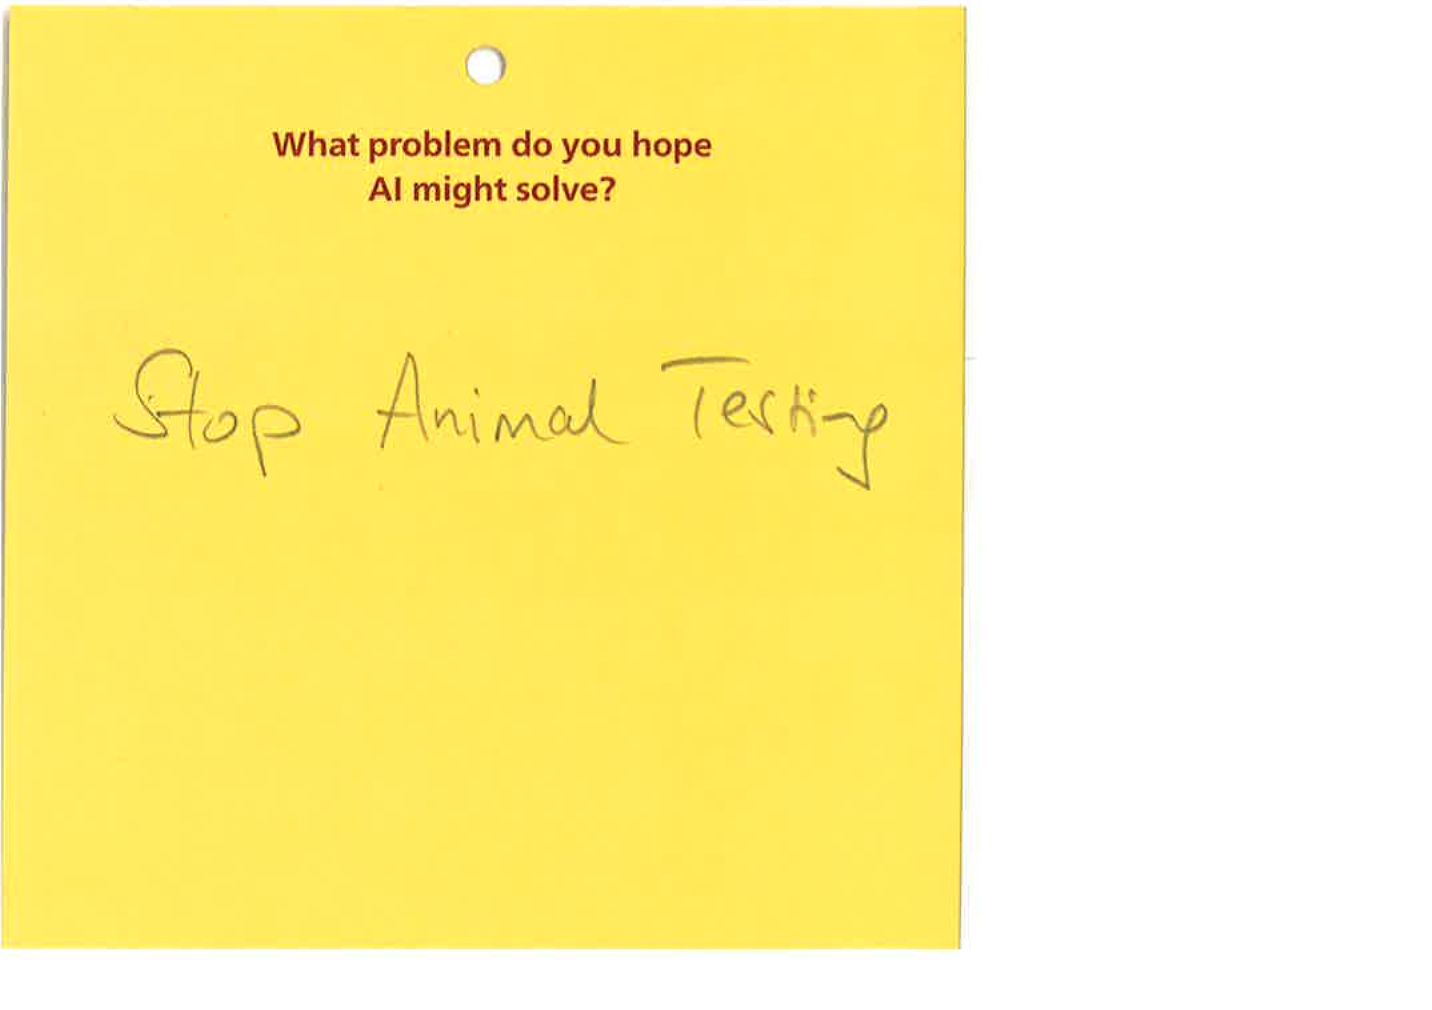 What problem do you hope
AI might solve?
Stop Animal Testing